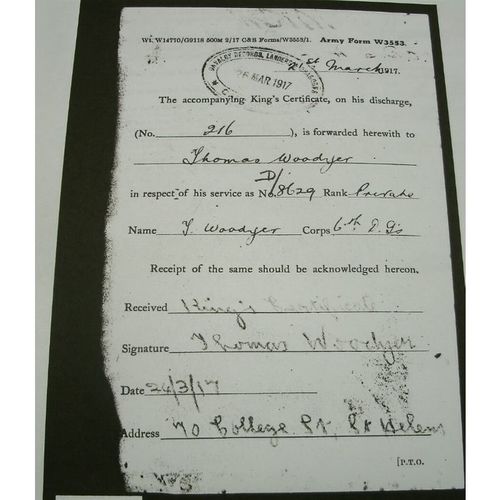 Wt. W14710/G9118 500M 2/17 C&B Forms/W3553/1. Army Form W3553.
CAVALRY RECORDS,
26 MAR 1917
March 1917.
The accompanying King's Certificate, on his discharge,
(No. 216), is forwarded herewith to
Thomas Woodyer
in respect of his service as No. D/8629 Rank Private
Name T. Woodyer Corps 6th D. Gs
Receipt of the same should be acknowledged hereon.
Received King's Certificate
Signature Thomas Woodyer
Date 26/3/17
Address 70 College St, St Helens
[P.T.O.